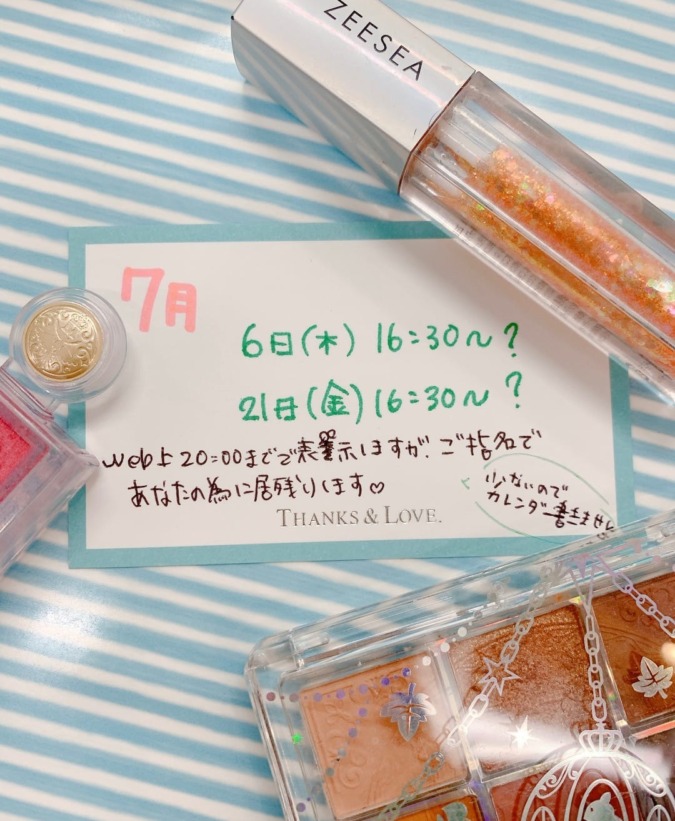 ZEESEA
7月
6日(木) 16:30〜?
21日(金) 16:30〜?
web上20:00までで表示しますが、ご指名で
あなたの為に居残りします♡
少ないので
カレンダー書きません
THANKS & LOVE.